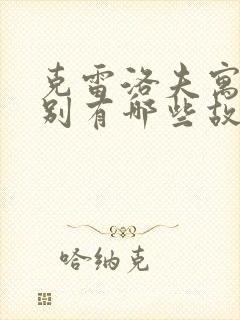 克雷洛夫寓
别有哪些故
哈纳克